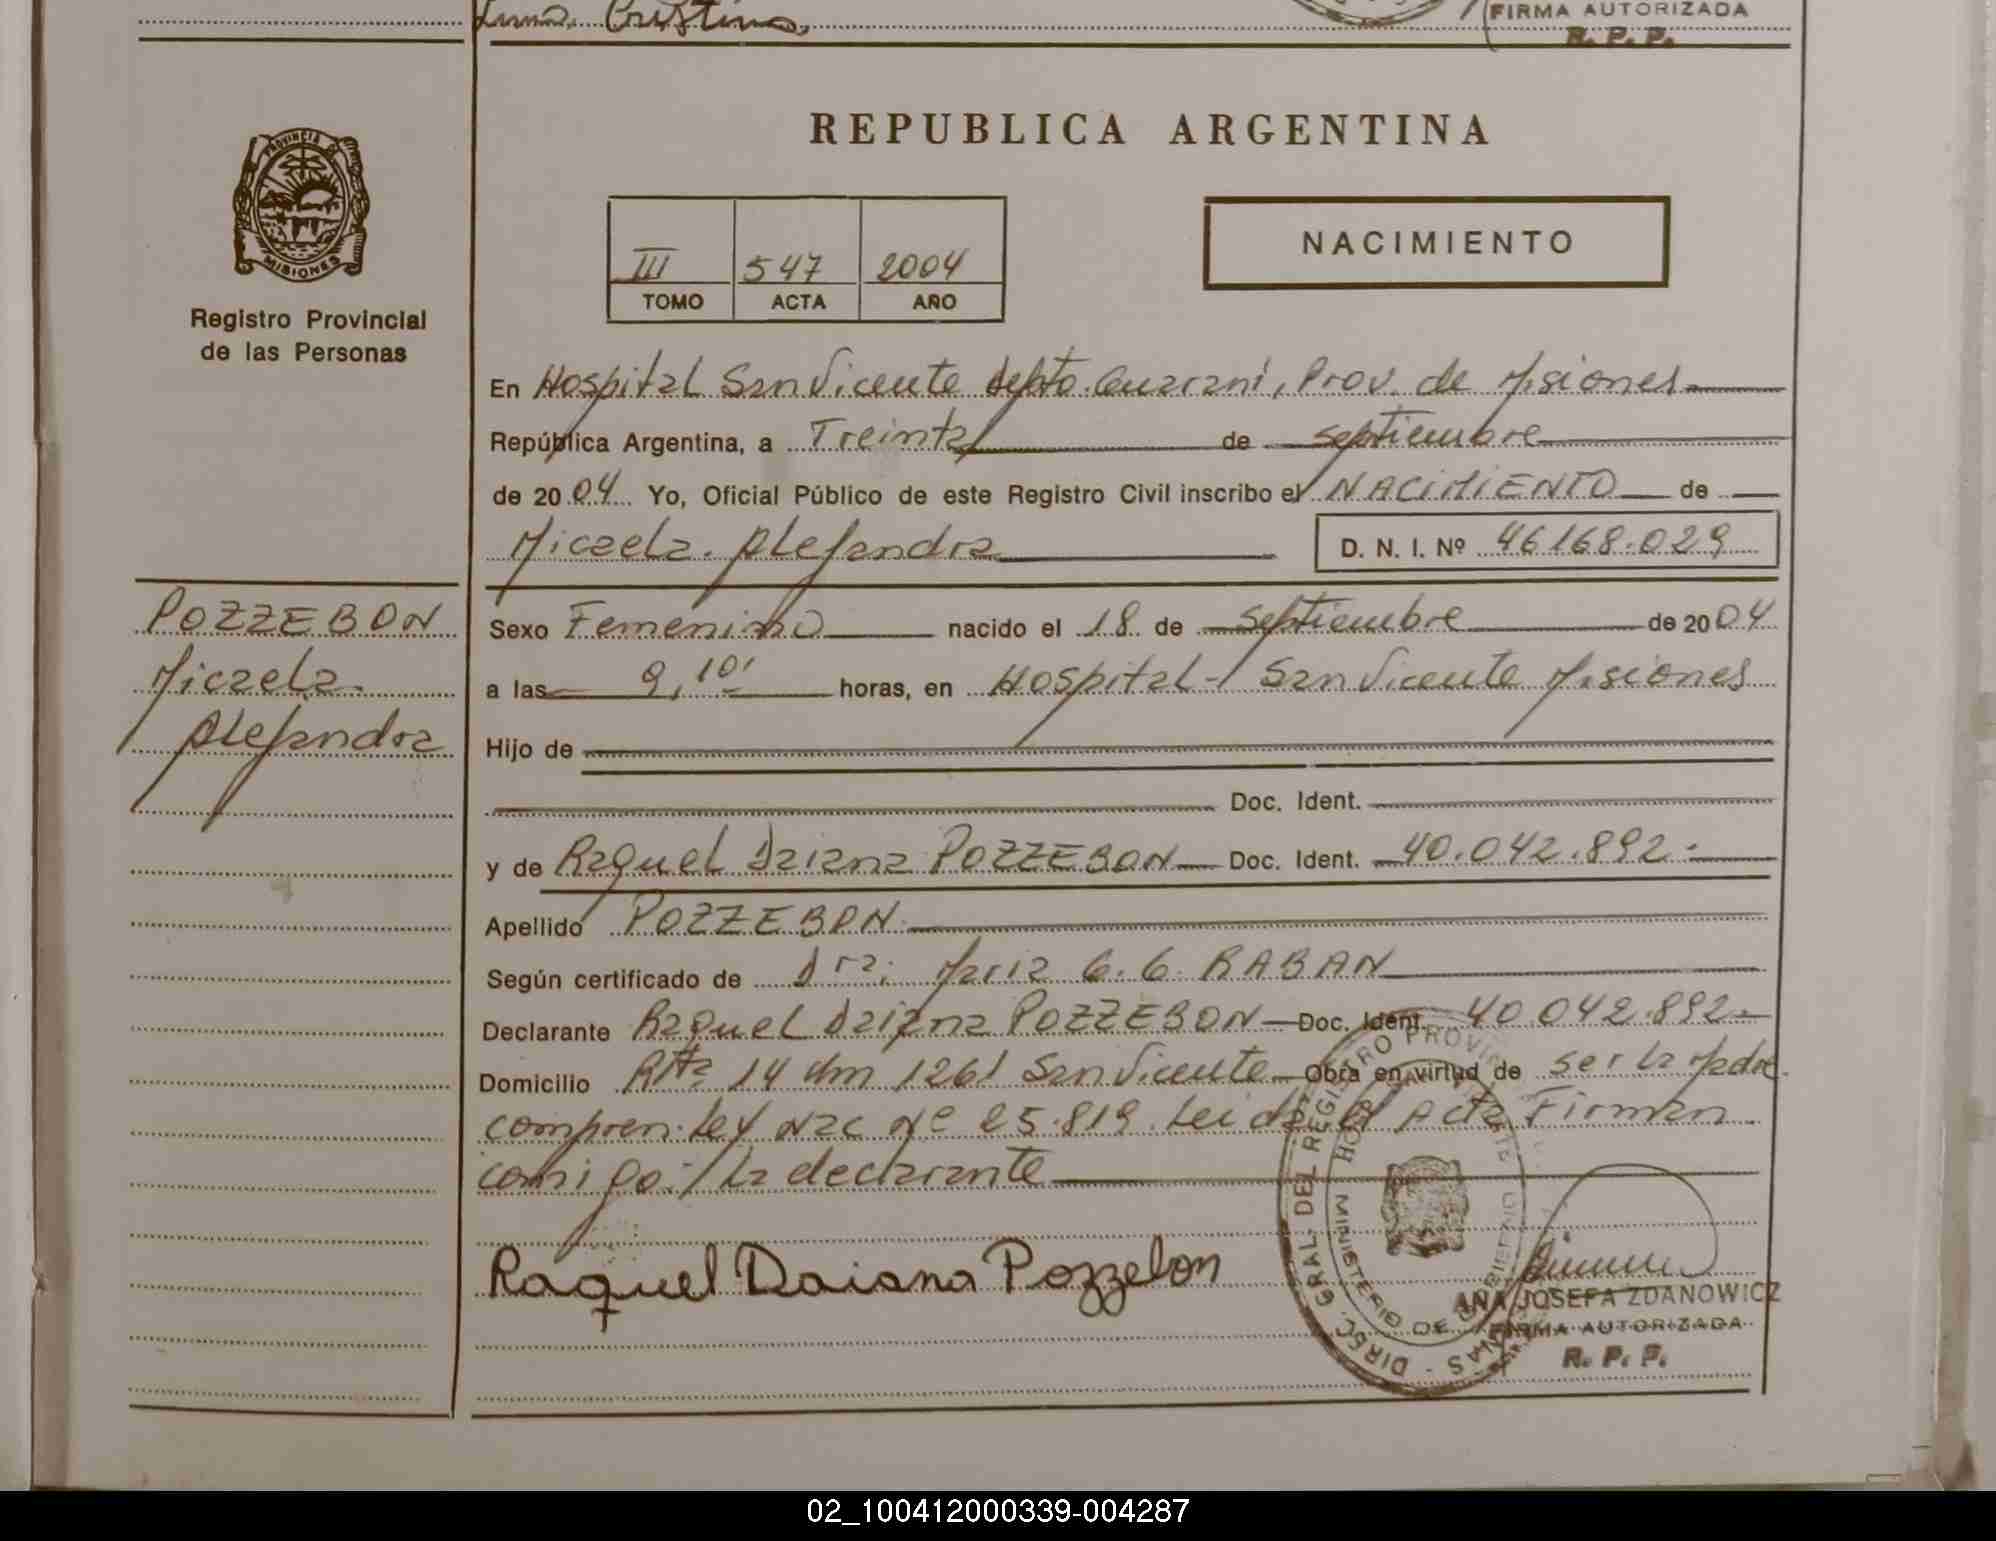 Cristina.
FIRMA AUTORIZADA
R. P. P.
PROVINCIA DE
MISIONES
Registro Provincial
de las Personas
REPUBLICA ARGENTINA
III 547 2004
TOMO ACTA AÑO
NACIMIENTO
En Hospital San Vicente depto. Guaraní, Prov. de Misiones
República Argentina, a Treinta de septiembre
de 2004 Yo, Oficial Público de este Registro Civil inscribo el NACIMIENTO de
Micaela. Alejandra
D. N. I. Nº 46168.029
POZZEBON
Micaela.
Alejandra
Sexo Femenino nacido el 18 de septiembre de 2004
a las 9,10' horas, en Hospital- San Vicente Misiones
Hijo de
Doc. Ident.
y de Raquel Daiana POZZEBON Doc. Ident. 40.042.892.-
Apellido POZZEBON.
Según certificado de Dra: Maria G. G. RABAN
Declarante Raquel Daiana POZZEBON Doc. Ident. 40.042.892-
Domicilio Rta 14 Km 1261 San Vicente Obra en virtud de ser la Madre.
compren. Ley Nac Nº 25.819. Leida el Acta Firman
comigo: / La declarante
Raquel Daiana Pozzebon
DIREC. GRAL. DEL REGISTRO PROVINCIAL
MINISTERIO DE GOBIERNO
ANA JOSEFA ZDANOWICZ
FIRMA AUTORIZADA
R. P. P.
02_100412000339-004287